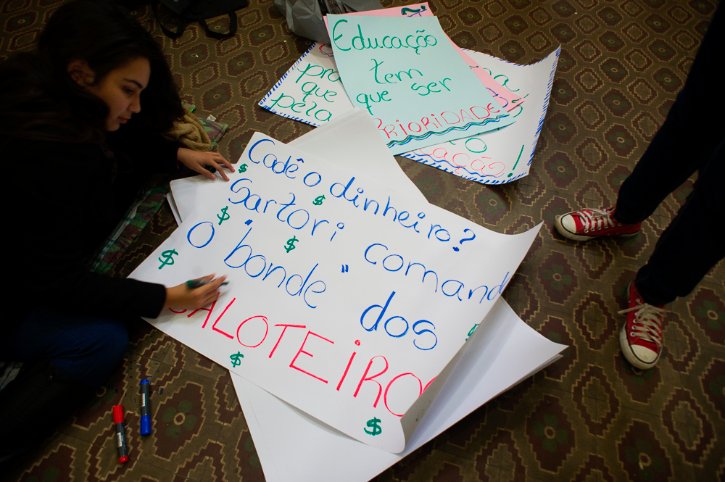 Educação
tem
que ser
PRIORIDADE
pr
que
pera
ação!
Cadê o dinheiro?
$ $
Sartori comand
$ $
O "bonde" dos
$
CALOTEIRO
$ $ $